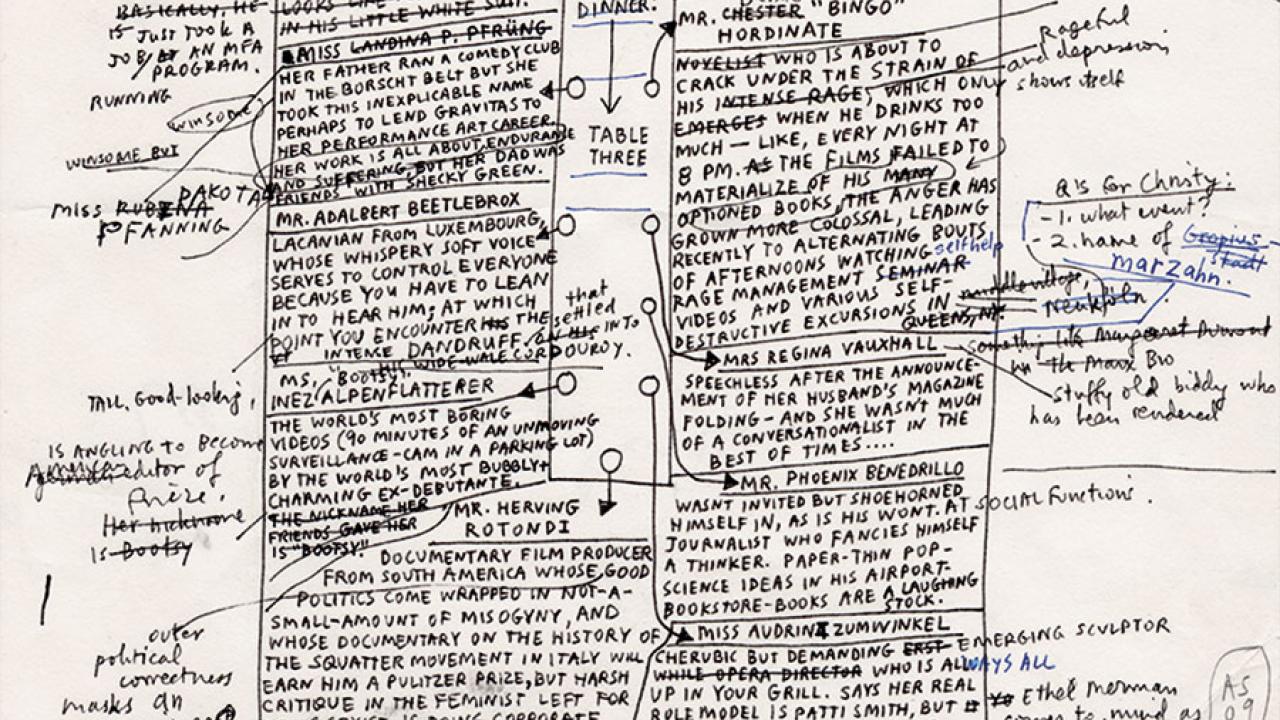 BASICALLY, HE
IS JUST TOOK A
JOB AT AN MFA
PROGRAM.
RUNNING
WINSOME
WINSOME BUT
IN HIS LITTLE WHITE SUIT.
MISS LANDINA P. PFRÜNG
HER FATHER RAN A COMEDY CLUB
IN THE BORSCHT BELT BUT SHE
TOOK THIS INEXPLICABLE NAME
PERHAPS TO LEND GRAVITAS TO
HER PERFORMANCE ART CAREER.
HER WORK IS ALL ABOUT ENDURANCE
AND SUFFERING, BUT HER DAD WAS
FRIENDS WITH SHECKY GREEN.
DAKOTA
MISS RUBENA
PFANNING
MR. ADALBERT BEETLEBROX
LACANIAN FROM LUXEMBOURG,
WHOSE WHISPERY SOFT VOICE
SERVES TO CONTROL EVERYONE
BECAUSE YOU HAVE TO LEAN
IN TO HEAR HIM; AT WHICH
POINT YOU ENCOUNTER HIS THE
that
settled
INTENSE DANDRUFF, ON HIS INTO
HIS WIDE-WALE CORDOUROY.
MS. "BOOTSY"
INEZ ALPENFLATTERER
TALL, Good-looking,
THE WORLD'S MOST BORING
VIDEOS (90 MINUTES OF AN UNMOVING
SURVEILLANCE-CAM IN A PARKING LOT)
BY THE WORLD'S MOST BUBBLY +
CHARMING EX-DEBUTANTE.
THE NICKNAME HER
FRIENDS GAVE HER
IS "BOOTSY."
IS ANGLING TO BECOME
editor of
Frieze.
Her nickname
IS Bootsy
MR. HERVING
ROTONDI
DOCUMENTARY FILM PRODUCER
FROM SOUTH AMERICA WHOSE GOOD
POLITICS COME WRAPPED IN NOT-A-
SMALL-AMOUNT OF MISOGYNY, AND
WHOSE DOCUMENTARY ON THE HISTORY OF
THE SQUATTER MOVEMENT IN ITALY WILL
EARN HIM A PULITZER PRIZE, BUT HARSH
CRITIQUE IN THE FEMINIST LEFT FOR
outer
political
correctness
masks an
DINNER.
TABLE
THREE
MR. CHESTER "BINGO"
HORDINATE
NOVELIST WHO IS ABOUT TO
CRACK UNDER THE STRAIN OF
HIS INTENSE RAGE, WHICH ONLY
EMERGES WHEN HE DRINKS TOO
MUCH — LIKE, EVERY NIGHT AT
8 PM. AS THE FILMS FAILED TO
MATERIALIZE OF HIS MANY
OPTIONED BOOKS, THE ANGER HAS
GROWN MORE COLOSSAL, LEADING
RECENTLY TO ALTERNATING BOUTS
OF AFTERNOONS WATCHING selfhelp
RAGE MANAGEMENT SEMINAR
VIDEOS AND VARIOUS SELF-
DESTRUCTIVE EXCURSIONS IN
QUEENS, NY.
rageful
and depression
shows itself
Q's for Christy:
- 1. what event?
- 2. name of Gropius
stadt
marzahn.
middle village,
Neukoln
MRS REGINA VAUXHALL
SPEECHLESS AFTER THE ANNOUNCE-
MENT OF HER HUSBAND'S MAGAZINE
FOLDING – AND SHE WASN'T MUCH
OF A CONVERSATIONALIST IN THE
BEST OF TIMES....
something like Margaret Dumond
in the Marx Bro
stuffy old biddy who
has been rendered
MR. PHOENIX BENEDRILLO
WASNT INVITED BUT SHOEHORNED
HIMSELF IN, AS IS HIS WONT. AT SOCIAL Functions.
JOURNALIST WHO FANCIES HIMSELF
A THINKER. PAPER-THIN POP-
SCIENCE IDEAS IN HIS AIRPORT-
BOOKSTORE-BOOKS ARE A LAUGHING
STOCK.
MISS AUDRINA ZUMWINKEL
CHERUBIC BUT DEMANDING ERST EMERGING SCULPTOR
WHILE OPERA DIRECTOR WHO IS ALWAYS ALL
UP IN YOUR GRILL. SAYS HER REAL
ROLE MODEL IS PATTI SMITH, BUT
Ethel Merman
comes to mind as
AS
09